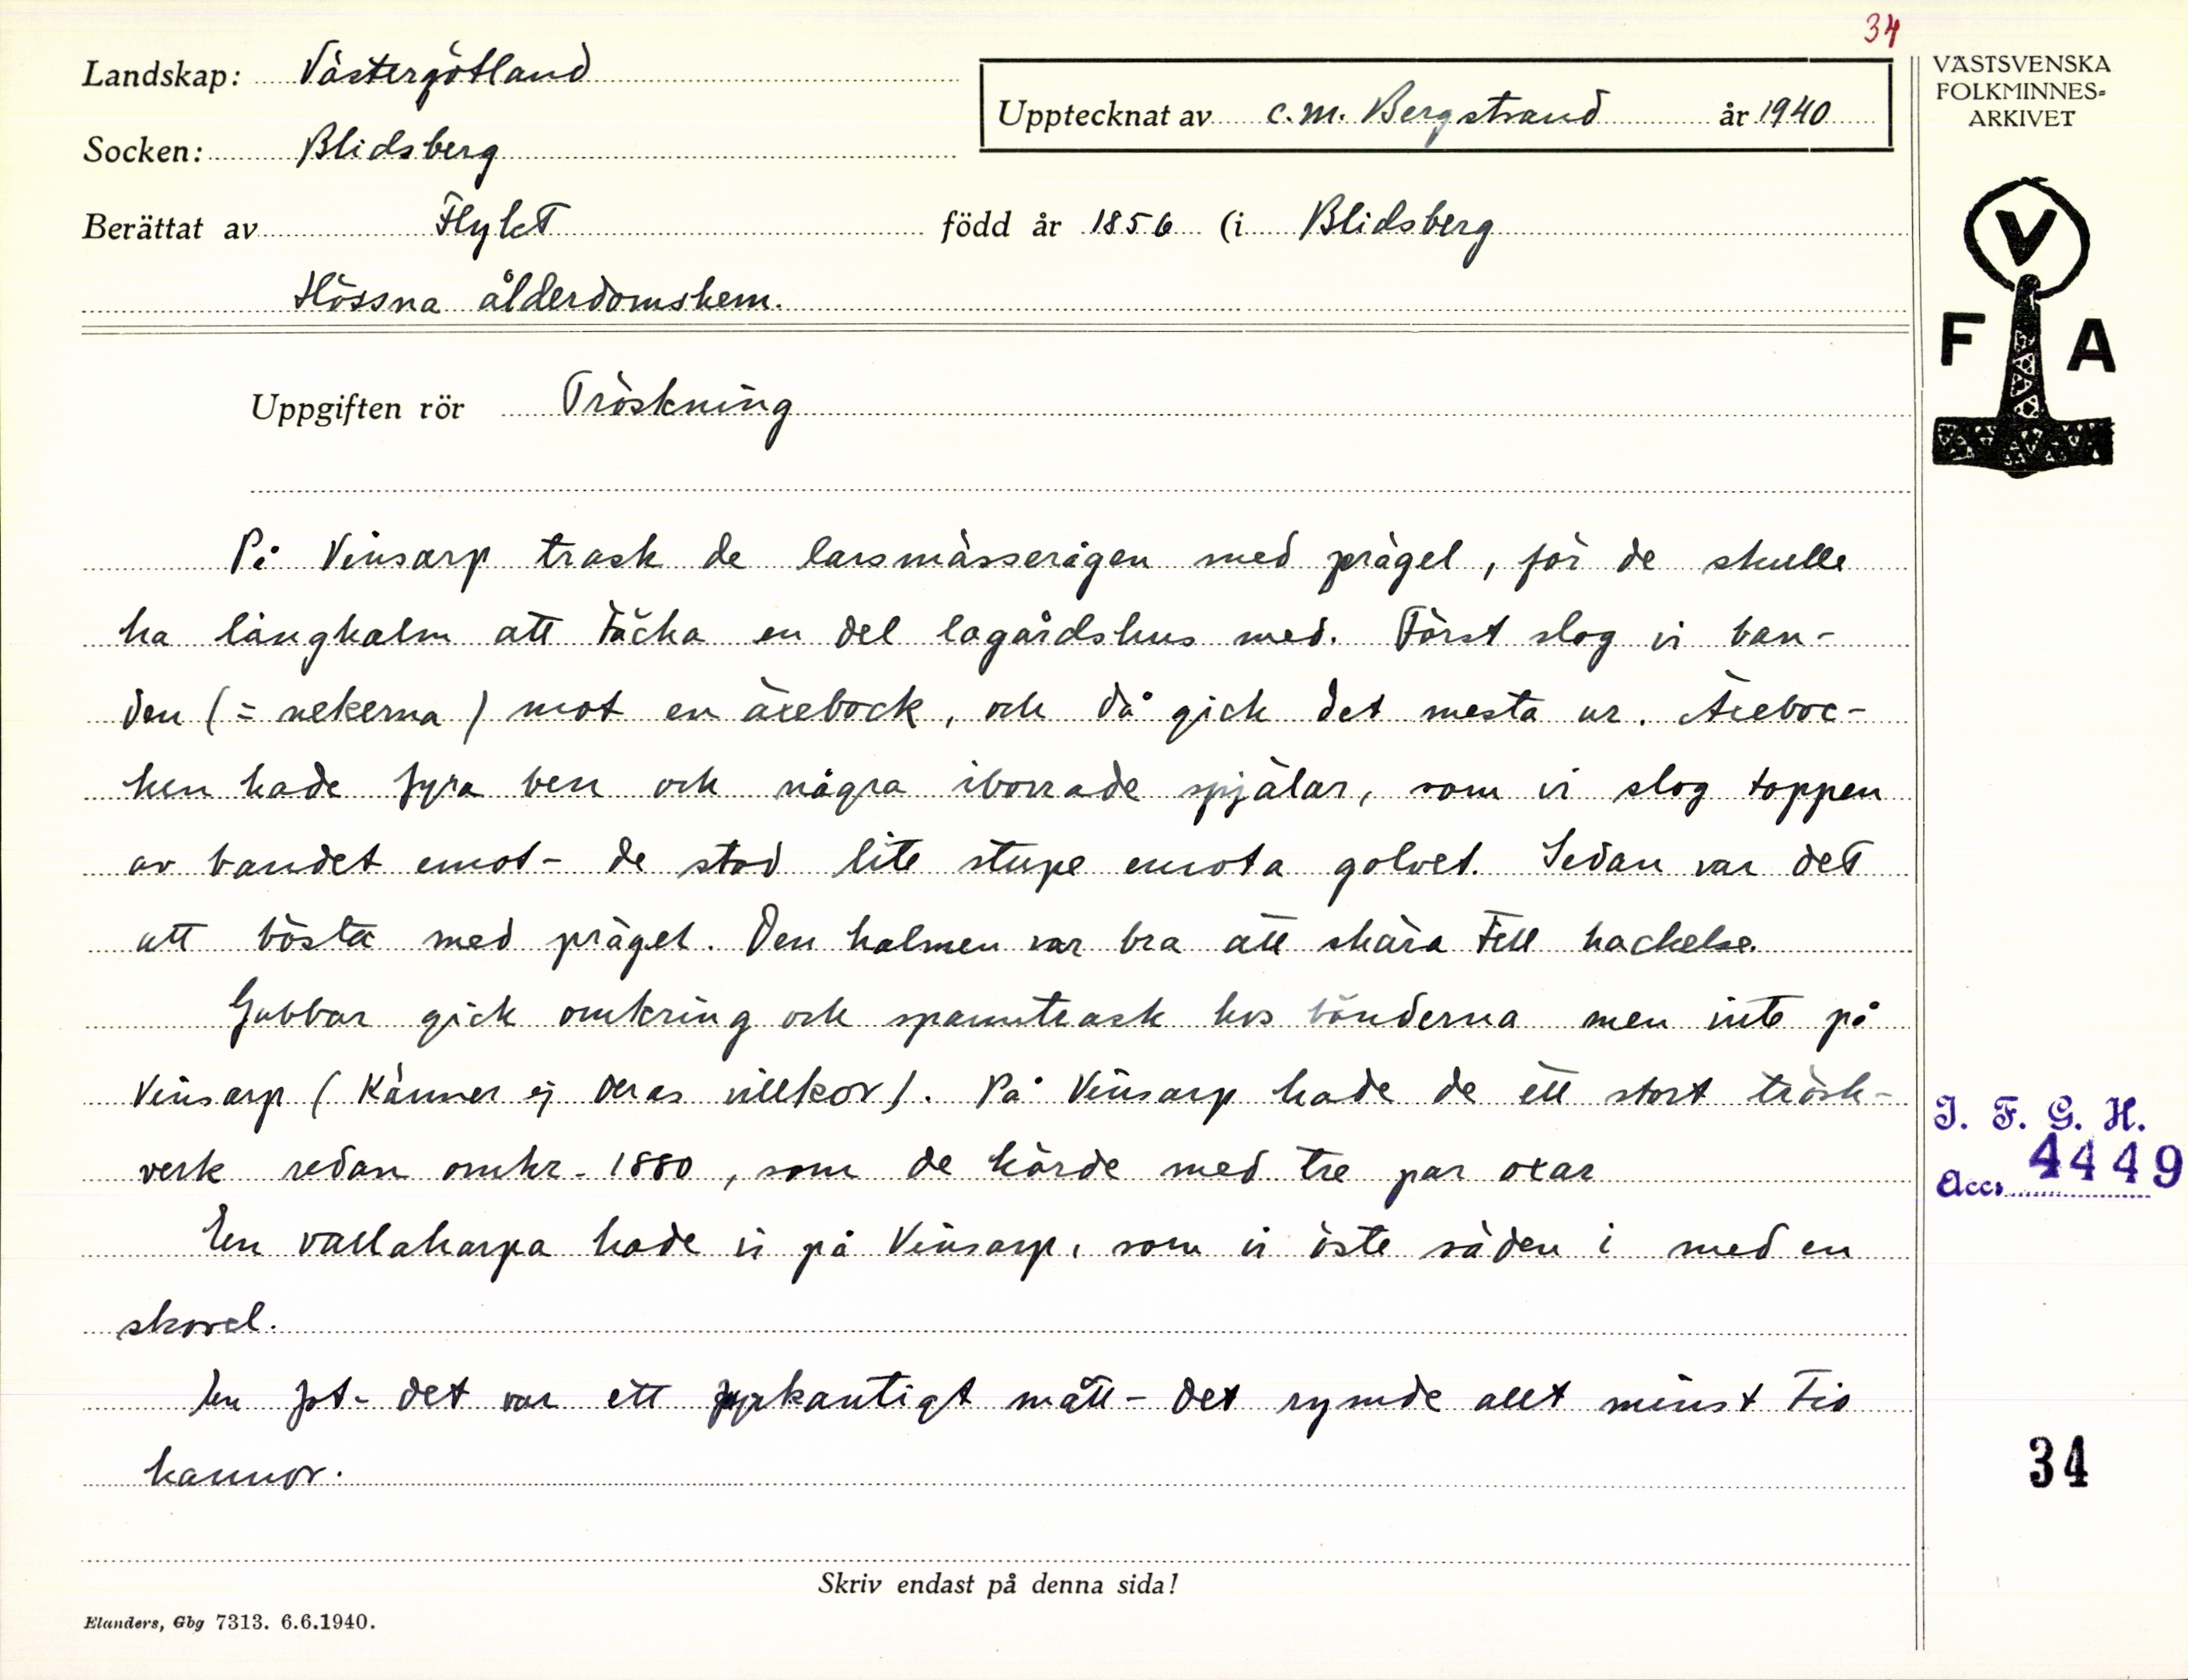 34
Landskap: Västergötland
Upptecknat av C.M. Bergstrand år 1940
VÄSTSVENSKA
FOLKMINNES-
ARKIVET
Socken: Blidsberg
Berättat av Flykt född år 1856 (i Blidsberg
Hössna ålderdomshem.
V
F A
Uppgiften rör Tröskning
På Vinsarp trask de larsmässerågen med prägel, för de skulle
ha långhalm att täcka en del lagårdshus med. Först slog vi ban-
den (= nekerna) mot en äxebock, och då gick det mesta ur. Äxeboc-
ken hade fyra ben och några iborrade spjälar, som vi slog toppen
av bandet emot - de stod lite stupe emota golvet. Sedan var det
att bösta med prägel. Den halmen var bra att skära till hackelse.
Gubbar gick omkring och spanntrask hos bönderna men inte på
Vinsarp (Känner ej deras villkor). På Vinsarp hade de ett stort trösk-
verk redan omkr. 1880, som de körde med tre par oxar
En vallaharpa hade vi på Vinsarp, som vi öste säden i med en
skovel.
En fot - det var ett fyrkantigt mått - det rymde allt minst tio
kannor.
I. F. G. H.
Acc. 4449
34
Skriv endast på denna sida!
Elanders, Gbg 7313. 6.6.1940.